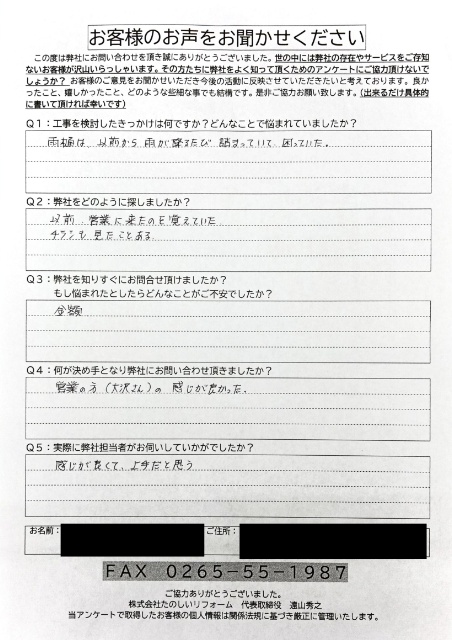 お客様のお声をお聞かせください
この度は弊社にお問い合わせを頂き誠にありがとうございました。世の中には弊社の存在やサービスをご存知
ないお客様が沢山いらっしゃいます。その方たちに弊社をよく知って頂くためのアンケートにご協力頂けないで
しょうか？お客様のご意見をお聞かせいただき今後の活動に反映させていただきたいと考えております。良か
ったこと、嬉しかったこと、どのような些細な事でも結構です。是非ご協力お願い致します。（出来るだけ具体的
に書いて頂ければ幸いです）
Q１：工事を検討したきっかけは何ですか？どんなことで悩まれていましたか？
雨樋は、以前から雨が降るたび 詰まっていて、困っていた。
Q２：弊社をどのように探しましたか？
以前、営業に来たのを覚えていた
チラシも 見たことある
Q３：弊社を知りすぐにお問合せ頂けましたか？
もし悩まれたとしたらどんなことがご不安でしたか？
金額
Q４：何が決め手となり弊社にお問い合わせ頂きましたか？
営業の方（大沢さん）の 感じが良かった。
Q５：実際に弊社担当者がお伺いしていかがでしたか？
感じが良くて、上手だと思う
お名前： ご住所：
FAX 0265-55-1987
ご協力ありがとうございました。
株式会社たのしいリフォーム 代表取締役 遠山秀之
当アンケートで取得したお客様の個人情報は関係法規に基づき厳正に管理いたします。